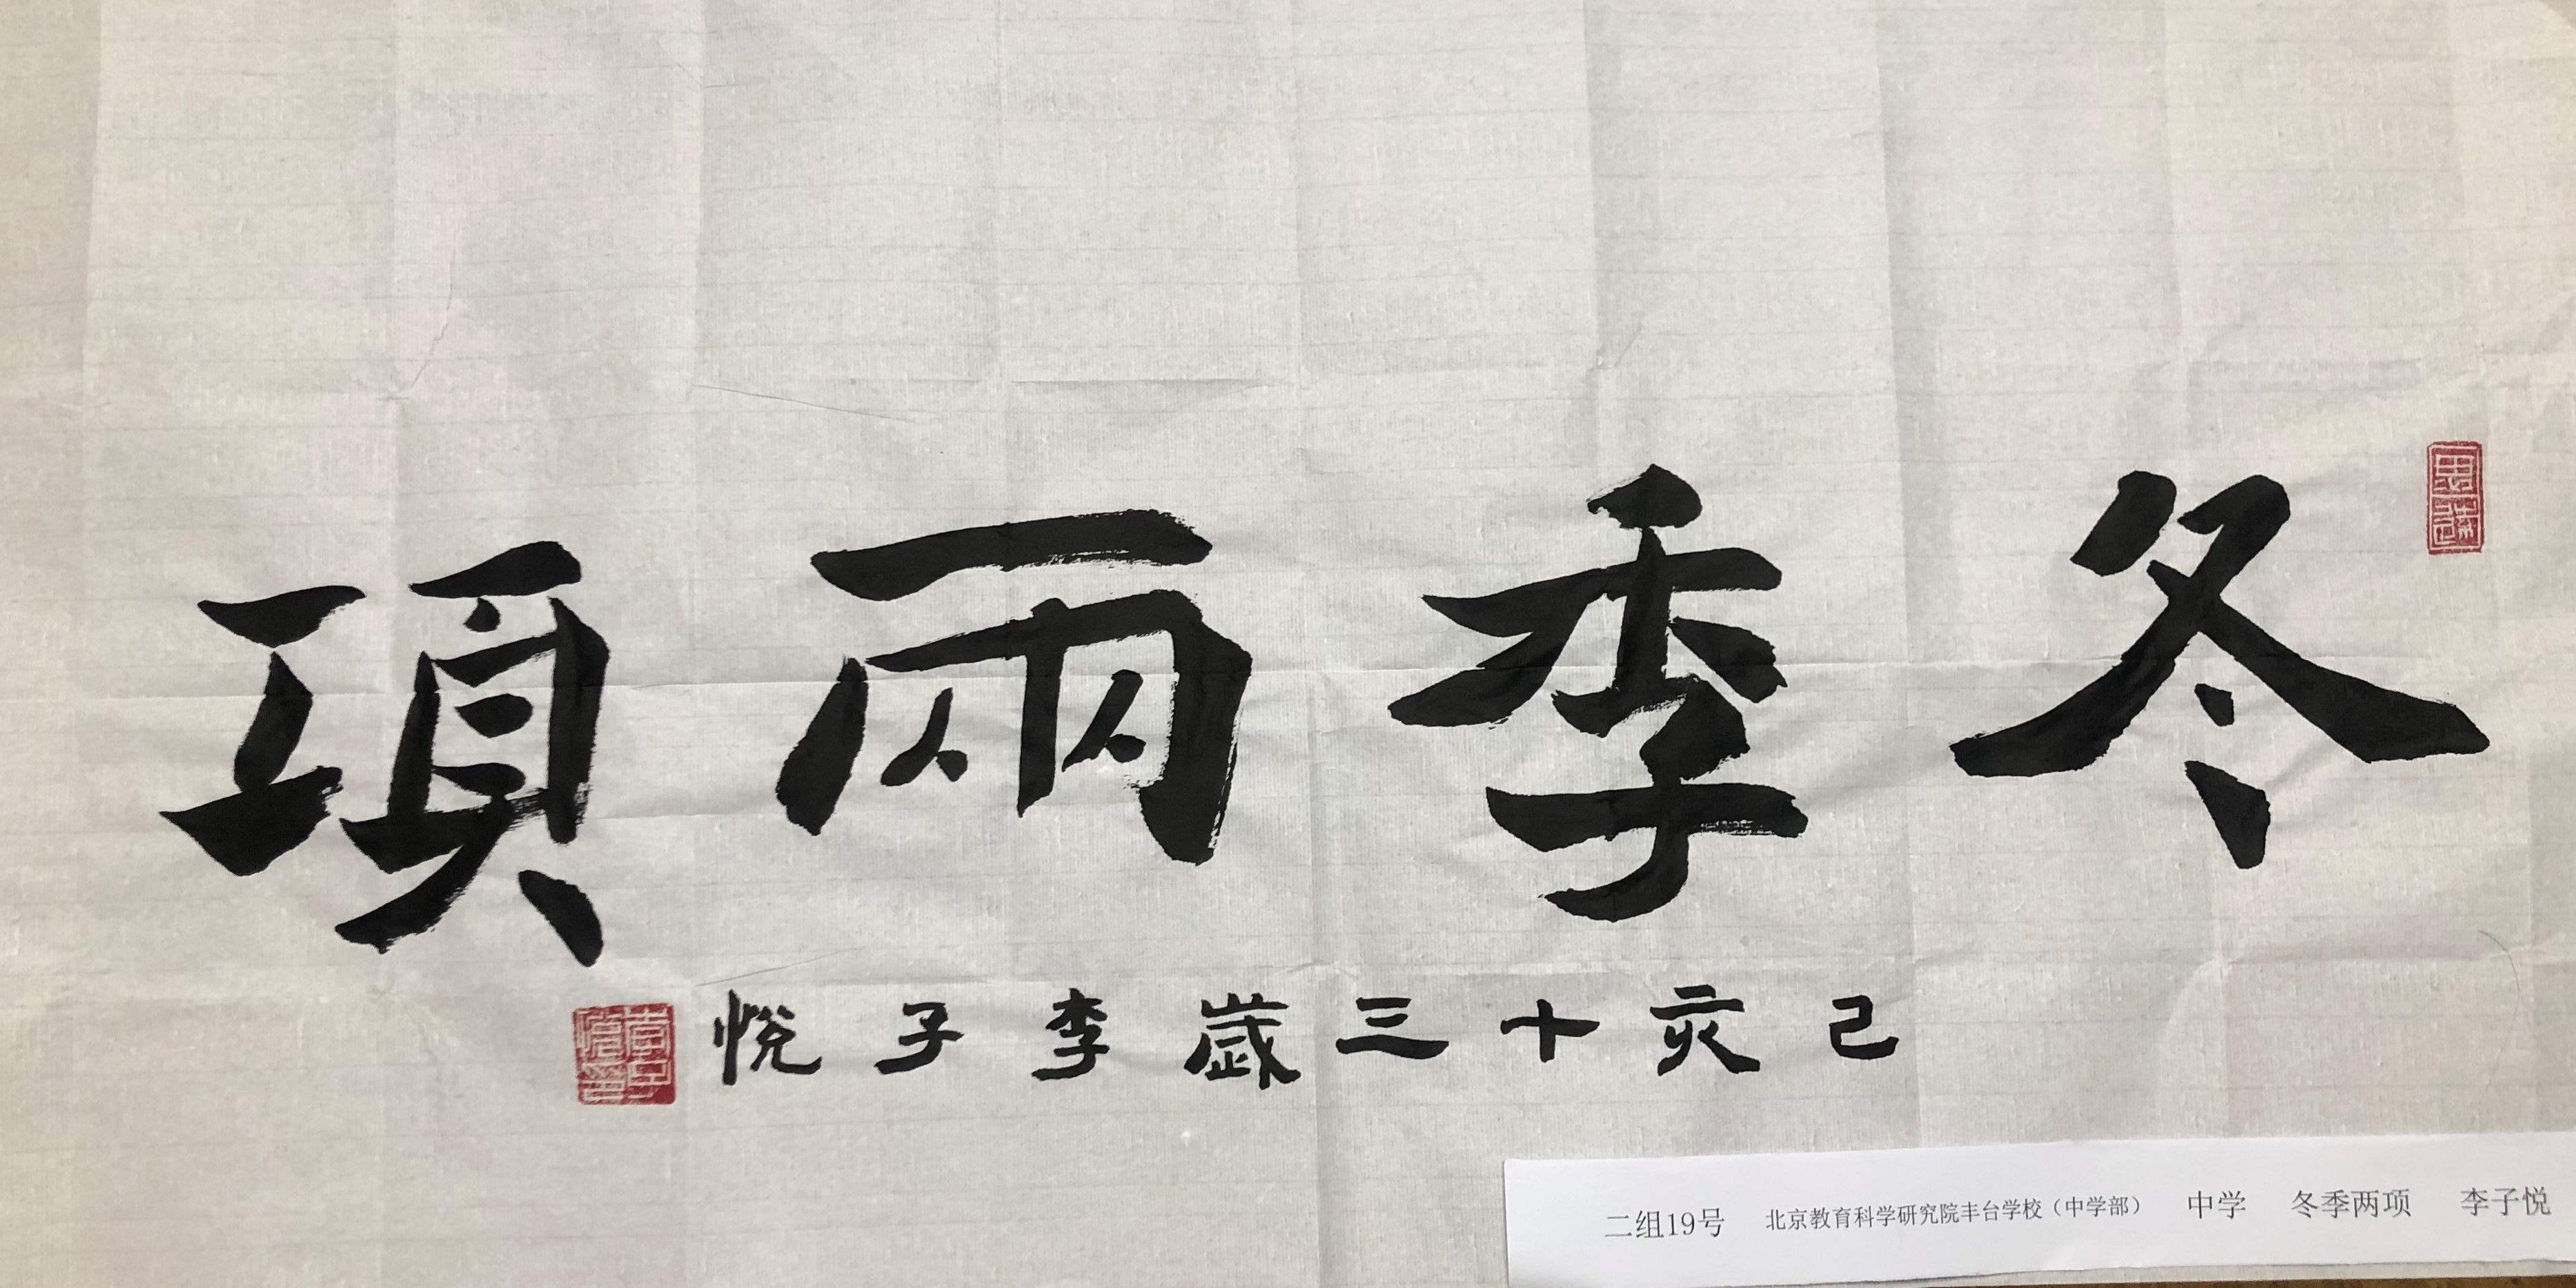 冬季兩項
己亥十三歲李子悅
二组19号 北京教育科学研究院丰台学校（中学部） 中学 冬季两项 李子悦